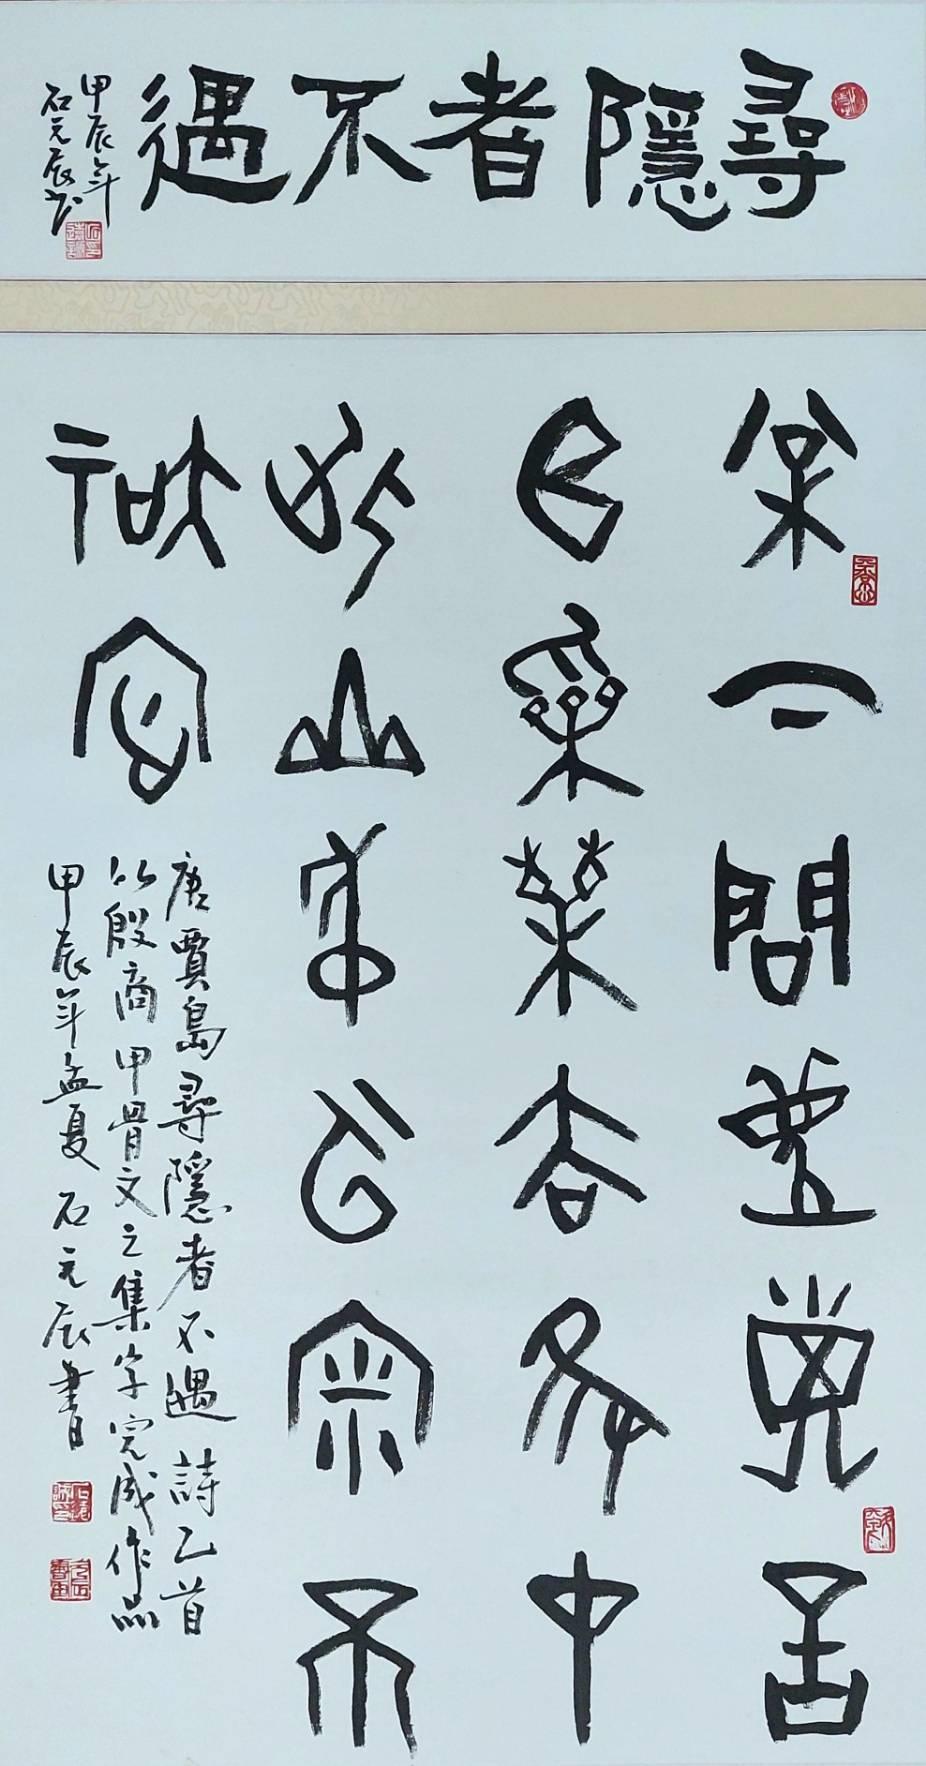 尋隱者不遇
甲辰年
石元辰书
松下問童子言
師采藥去只在
此山中雲深不
知處
唐賈島尋隱者不遇詩乙首
以殷商甲骨文之集字完成作品
甲辰年孟夏石元辰書